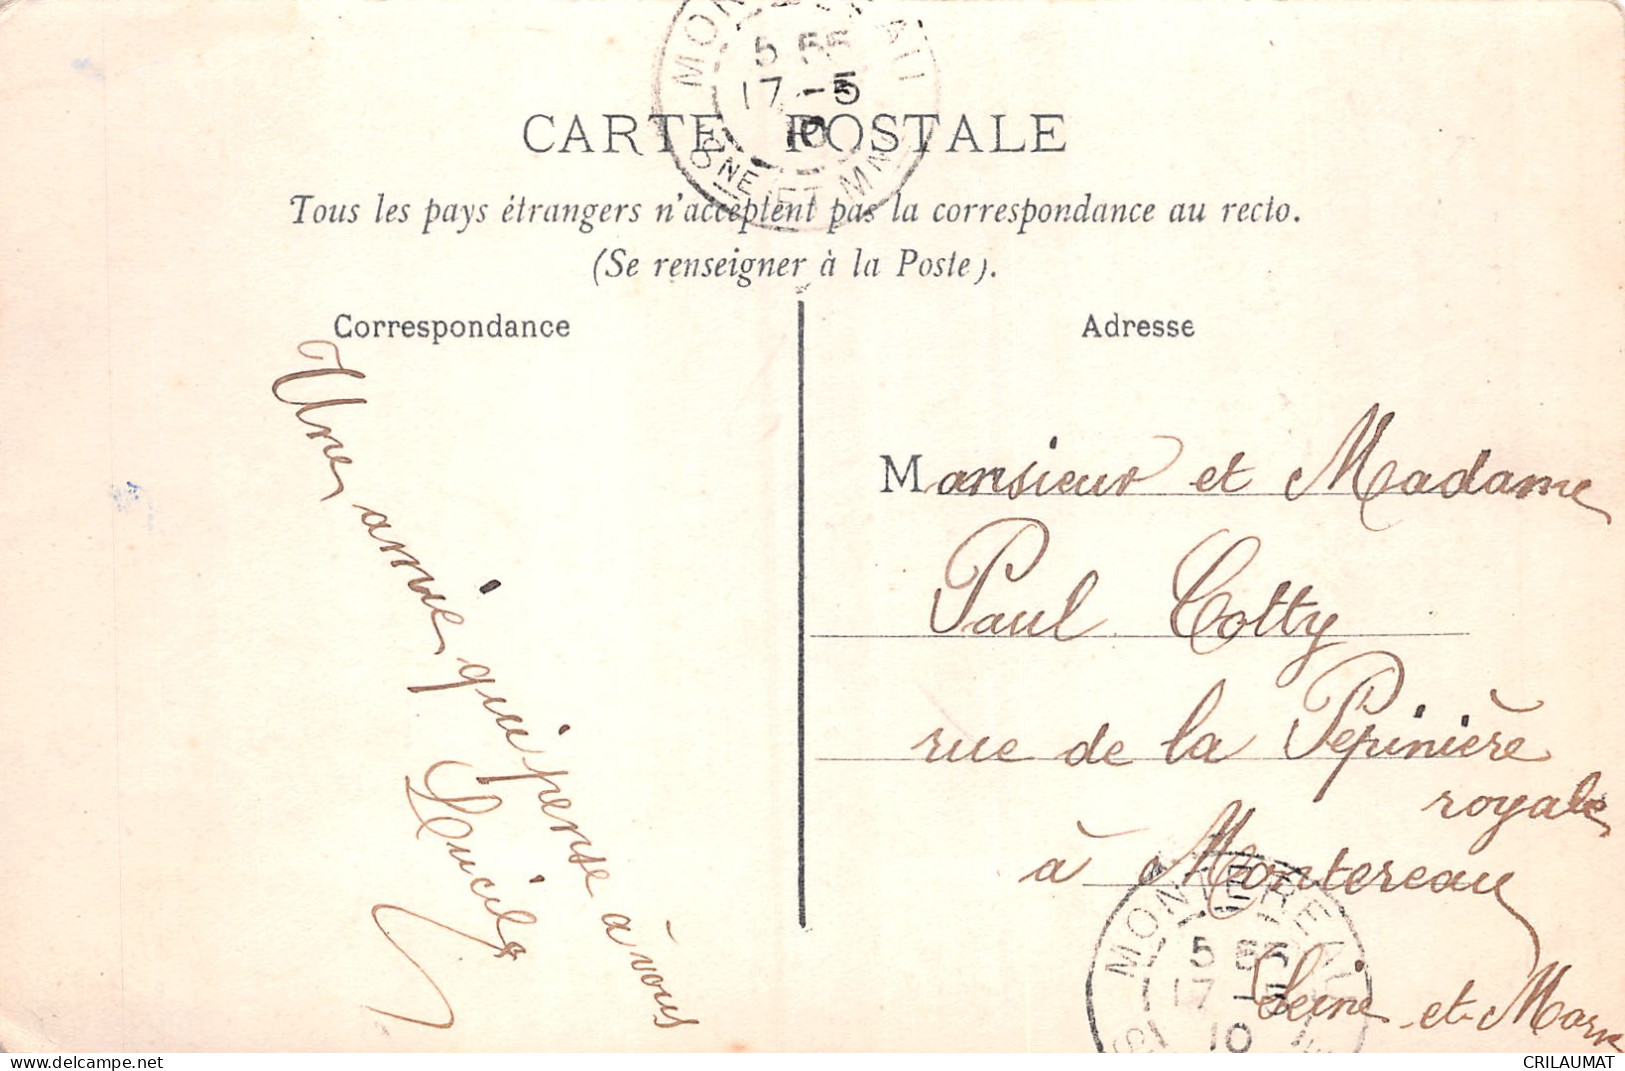 MONTEREAU
5 55
17 -5
10
SNE ET MNE
CARTE POSTALE
Tous les pays étrangers n'acceptent pas la correspondance au recto.
(Se renseigner à la Poste).
Correspondance
Une amie qui pense à vous
Lucile
Adresse
Monsieur et Madame
Paul Cotty
rue de la Pépinière
royale
à Montereau
Seine et Marne
MONTEREAU
5 55
17 -5
10
CRILAUMAT